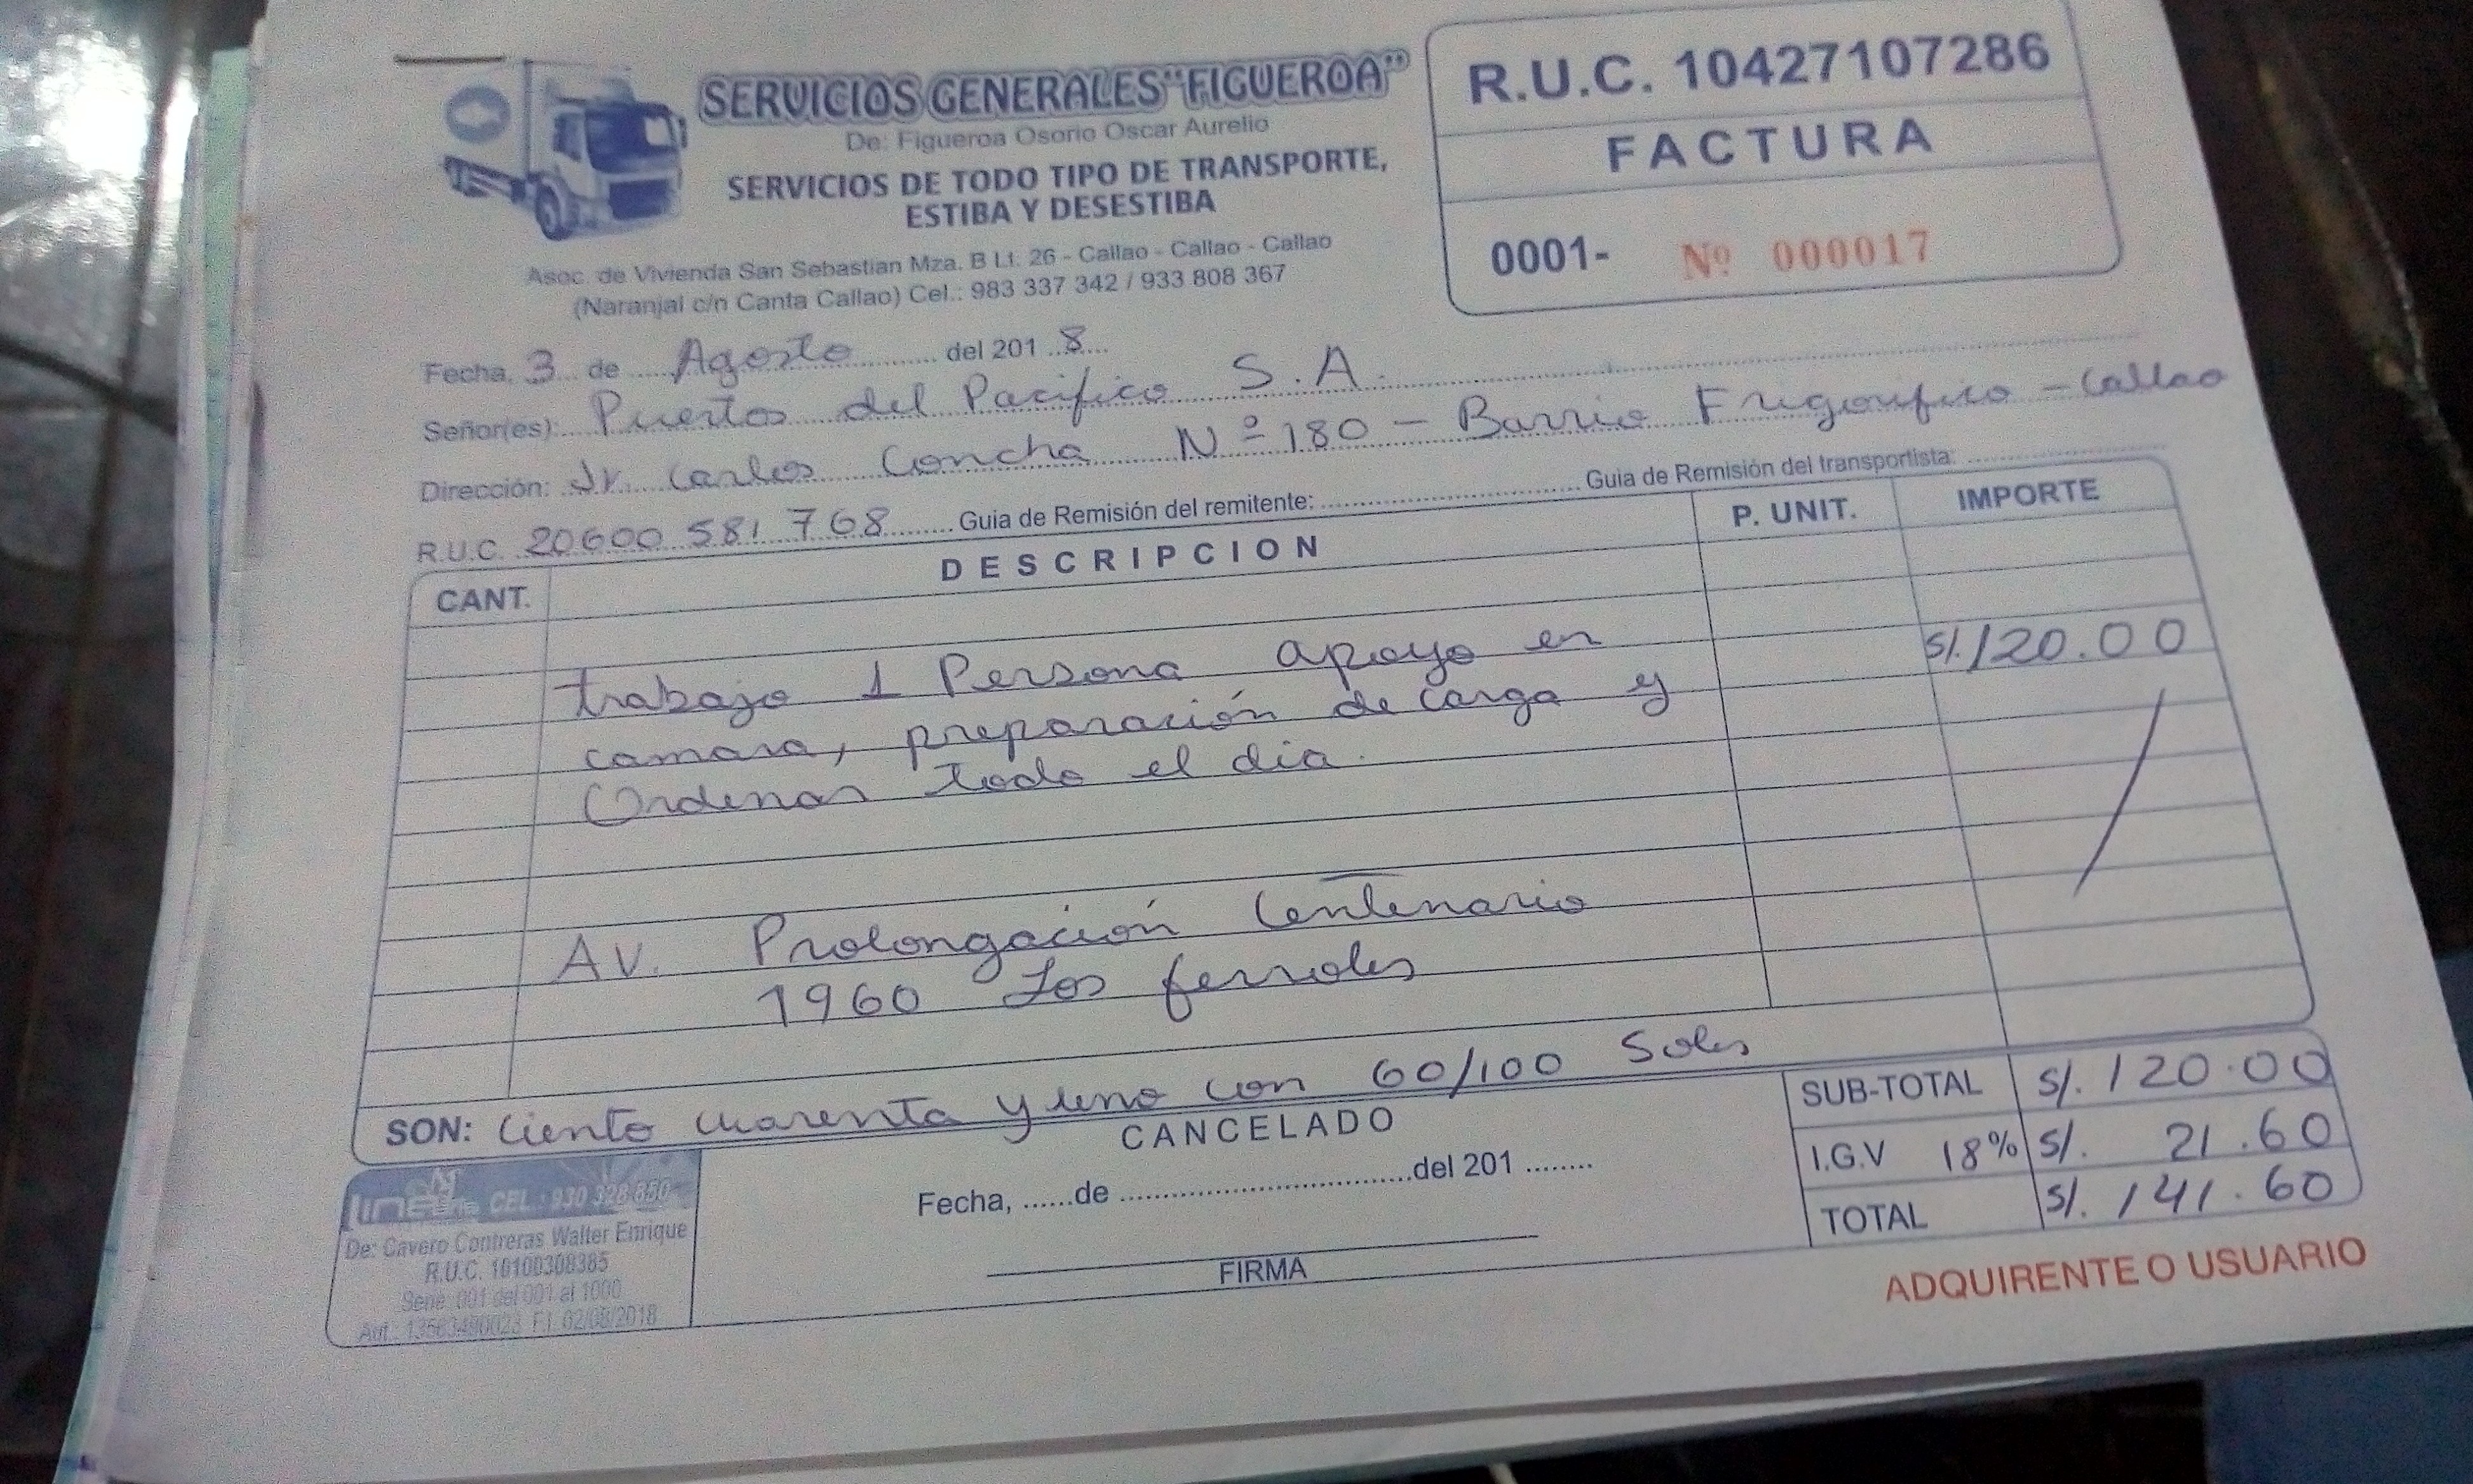 SERVICIOS GENERALES "FIGUEROA"
De: Figueroa Osorio Oscar Aurelio
SERVICIOS DE TODO TIPO DE TRANSPORTE,
ESTIBA Y DESESTIBA
Asoc. de Vivienda San Sebastian Mza. B Lt. 26 - Callao - Callao - Callao
(Naranjal c/n Canta Callao) Cel.: 983 337 342 / 933 808 367
R.U.C. 10427107286
FACTURA
0001- Nº 000017
Fecha, 3 de Agosto del 2018
Señor(es): Puertos del Pacifico S.A.
Dirección: Jr. Carlos Concha Nº 180 - Barrio Frigorifico - Callao
R.U.C. 20600 581 768 Guia de Remisión del remitente: Guia de Remisión del transportista:
CANT. DESCRIPCION P. UNIT. IMPORTE
trabajo 1 Persona apoyo en S/. 120.00
camara, preparación de carga y
Ordenar todo el dia.
AV. Prolongación Centenario
1960 Los ferroles
SON: Ciento cuarenta y uno con 60/100 Soles
CANCELADO
Fecha, ......de ..........del 201 ........
FIRMA
SUB-TOTAL S/. 120.00
I.G.V 18% S/. 21.60
TOTAL S/. 141.60
CEL.: 930 328 650
De: Cavero Contreras Walter Enrique
R.U.C. 10100308385
Serie: 001 del 001 al 1000
Aut.: F.I. 02/08/2018
ADQUIRENTE O USUARIO